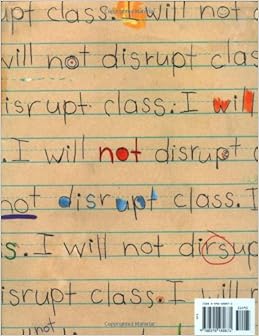 upt class. I will not
will not disrupt clas
isrupt class. I will
. I will not disrupt c
not disrupt class. I
s. I will not dirsup
isrupt class. I will n
not disrupt